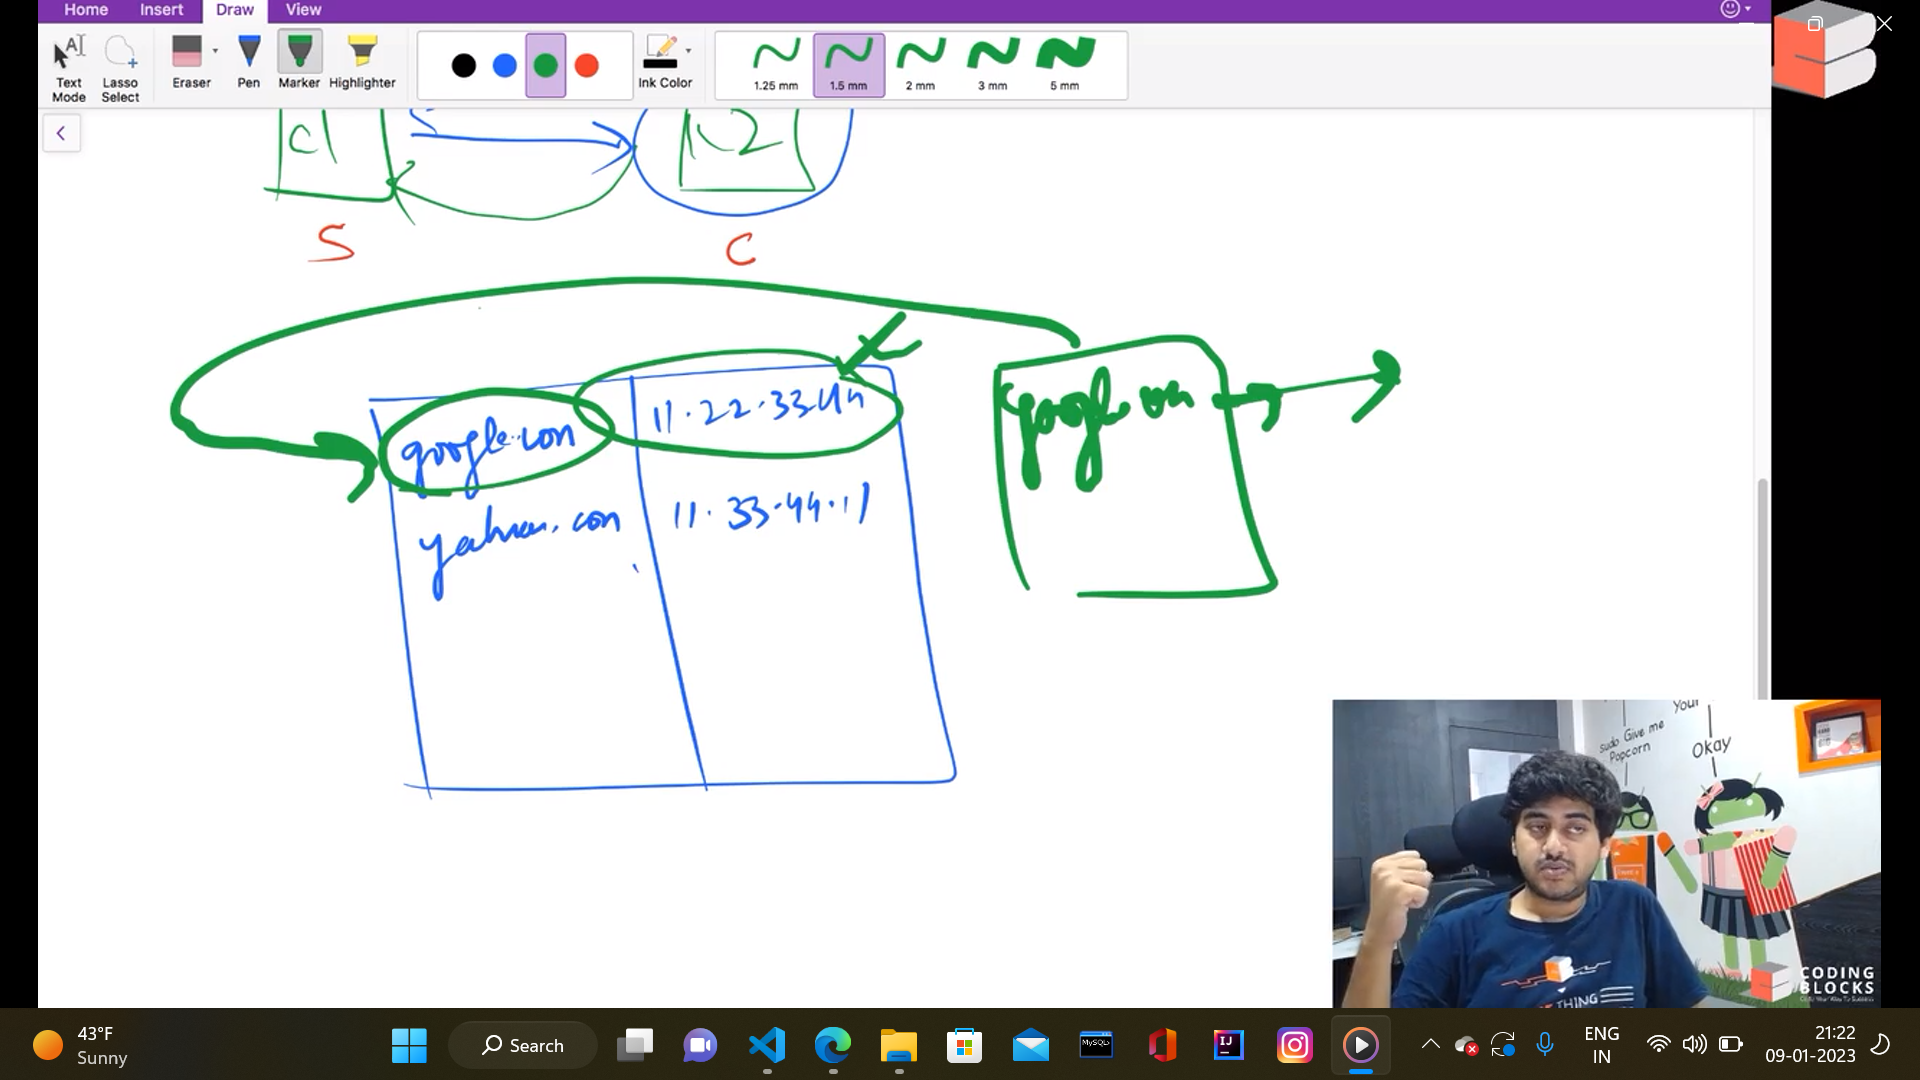 Home Insert Draw View
Text Mode
Lasso Select
Eraser
Pen
Marker
Highlighter
Ink Color
1.25 mm
1.5 mm
2 mm
3 mm
5 mm
S
C
google.com 11.22.33.44
11.33.44.11
sudo Give me Popcorn
Okay
THING
CODING BLOCKS
43°F
Sunny
Search
MySQL
IJ
ENG
IN
21:22
09-01-2023